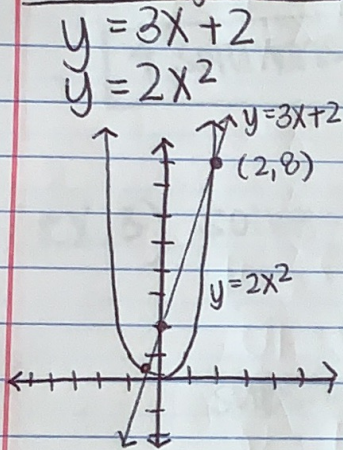 y = 3x + 2
y = 2x²
y = 3x + 2
(2,8)
y = 2x²